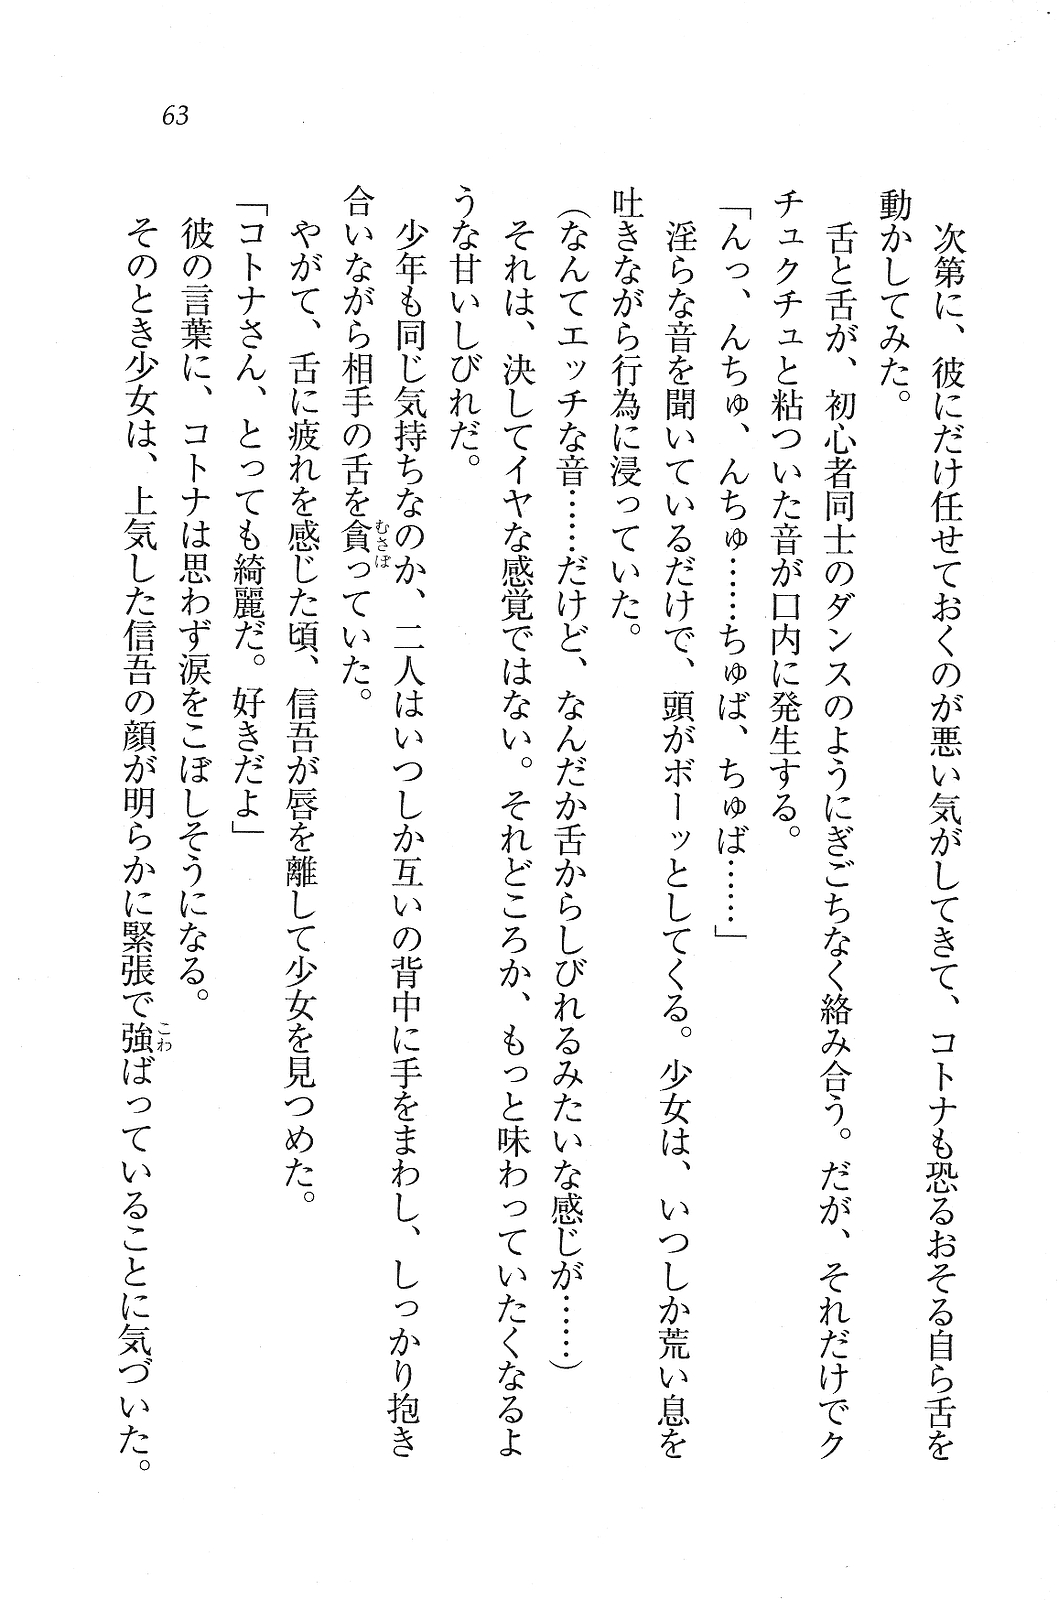 63
次第に、彼にだけ任せておくのが悪い気がしてきて、コトナも恐るおそる自ら舌を
動かしてみた。
舌と舌が、初心者同士のダンスのようにぎごちなく絡み合う。だが、それだけでク
チュクチュと粘ついた音が口内に発生する。
「んっ、んちゅ、んちゅ……ちゅば、ちゅば……」
淫らな音を聞いているだけで、頭がボーッとしてくる。少女は、いつしか荒い息を
吐きながら行為に浸っていた。
(なんてエッチな音……だけど、なんだか舌からしびれるみたいな感じが……)
それは、決してイヤな感覚ではない。それどころか、もっと味わっていたくなるよ
うな甘いしびれだ。
少年も同じ気持ちなのか、二人はいつしか互いの背中に手をまわし、しっかり抱き
合いながら相手の舌を貪っていた。
やがて、舌に疲れを感じた頃、信吾が唇を離して少女を見つめた。
「コトナさん、とっても綺麗だ。好きだよ」
彼の言葉に、コトナは思わず涙をこぼしそうになる。
そのとき少女は、上気した信吾の顔が明らかに緊張で強ばっていることに気づいた。